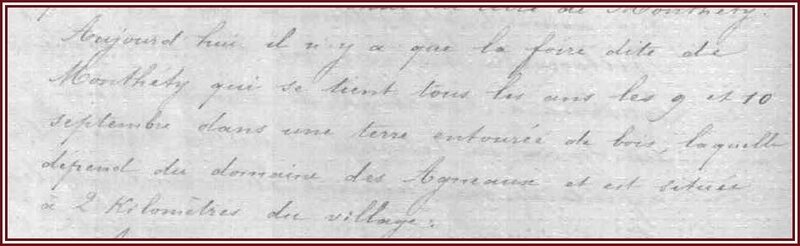 de Monthéty.
Aujourd'hui il n'y a que la foire dite de
Monthéty qui se tient tous les ans les 9 et 10
septembre dans une terre entourée de bois, laquelle
dépend du domaine des Agneaux et est située
à 2 Kilomètres du village.